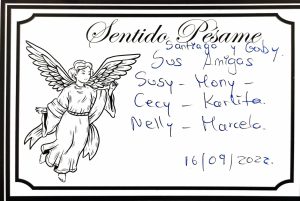 Sentido Pésame
Santiago y Gaby.
Sus Amigos
Susy - Mony -
Cecy - Karlita.
Nelly - Marcela.
16/09/2022.